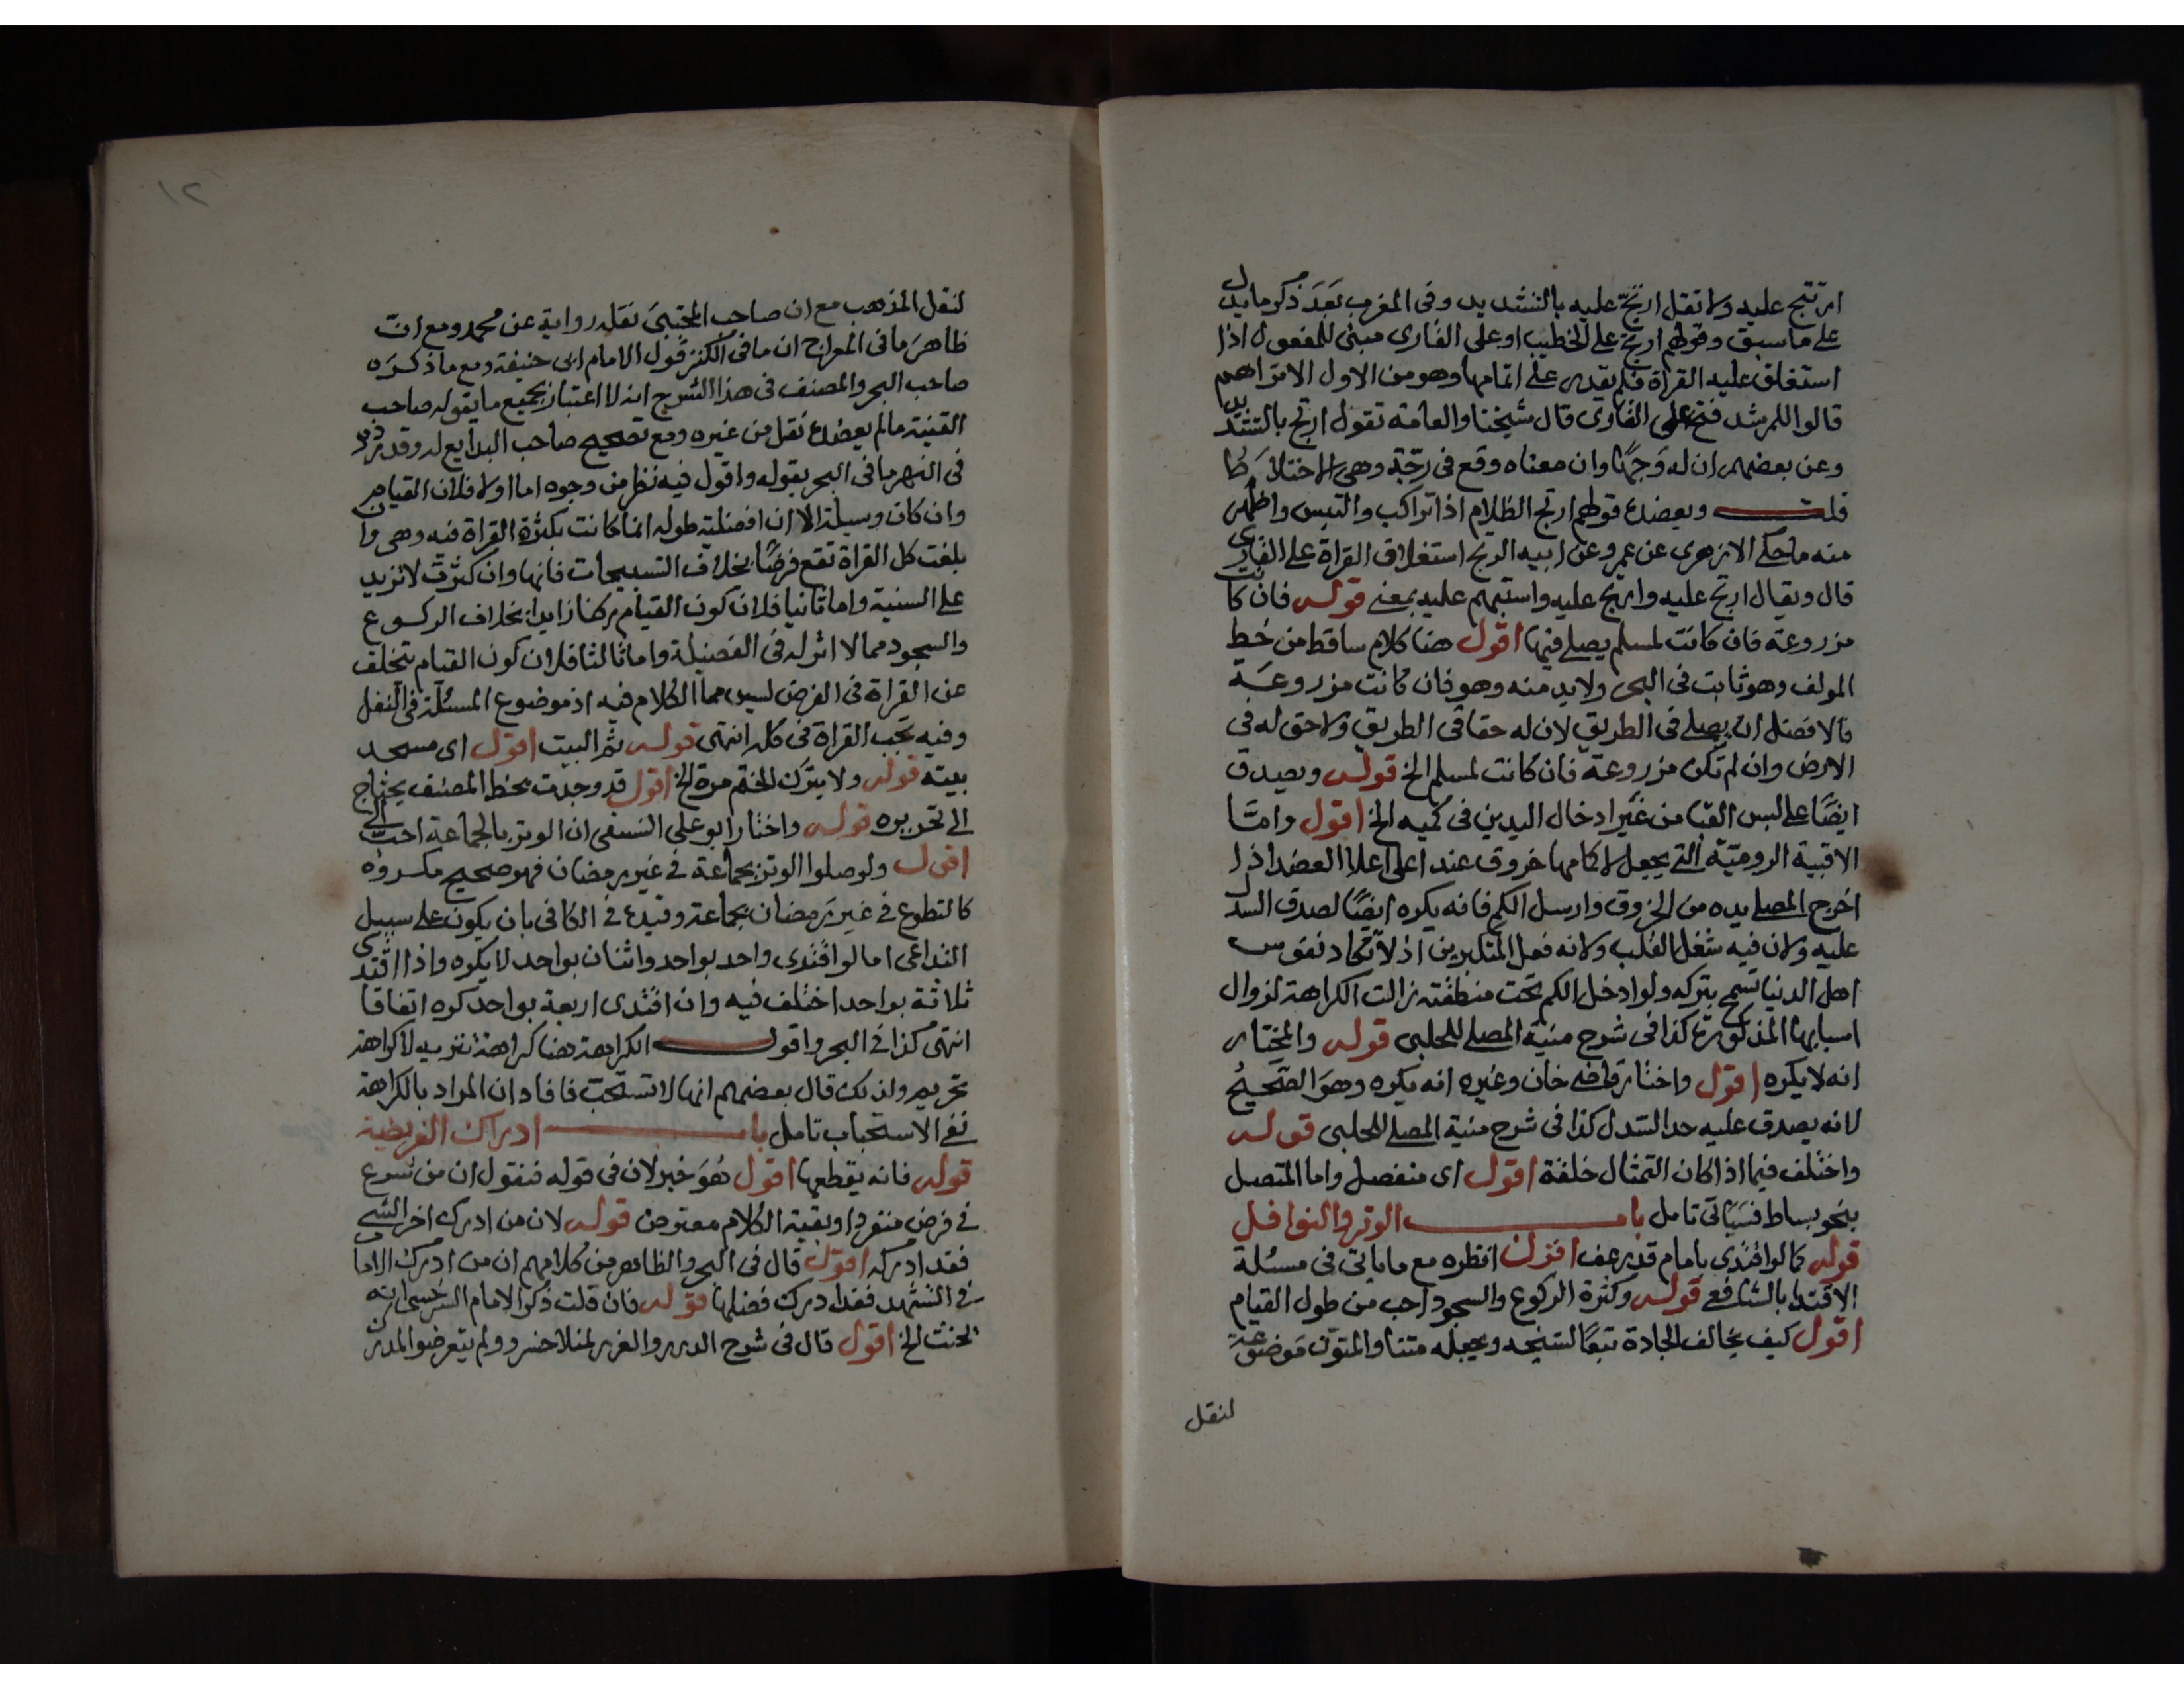 ارتتج عليه ولا تقل ارتج عليه بالتشديد وفى المغرب بعد ذكر ما يدل
على ما سبق وقولهم ارتج على الخطيب او على القارى مبنى للمفعول اذا
استغلق عليه القراة فلم يقدر على اتمامها وهو من الاول الا تراهم
قالوا للمرشد فتح على القارى قال شيخنا والعامة تقول ارتج بالتشديد
وعن بعضهم ان له وجها وان معناه وقع فى رجة وهى الاختلاط
قلت ويعضده قولهم ارتج الظلام اذا تراكب والتبس واظهر
منه ما حكى الازهرى عن عمرو عن ابيه الرتج استغلاق القراة على القارى
قال ويقال ارتج عليه وارتج عليه واستبهم عليه بمعنى قوله فان كانت
مزروعة فان كانت لمسلم يصلى فيها اقول هنا كلام ساقط من خط
المولف وهو ثابت فى البحر ولا بد منه وهو فان كانت مزروعة
فالافضل ان يصلى فى الطريق لان له حقا فى الطريق ولا حق له فى
الارض وان لم تكن مزروعة فان كانت لمسلم الخ قوله ويصدق
ايضا على لبس القبا من غير ادخال اليدين فى كميه الخ اقول واما
الاقبية الرومية التى يجعل لاكمامها خروق عند اعلى اعلا العضد اذا
اخرج المصلى يده من الخروق وارسل الكم فانه يكره ايضا لصدق السدل
عليه ولان فيه شغل القلب ولانه فعل المتكبرين اذ لا تكاد نفوس
اهل الدنيا تسمح بتركه ولو ادخل الكم تحت منطقته زالت الكراهة لزوال
اسبابها المذكورة كذا فى شرح منية المصلى للحلبى قوله والمختار
انه لا يكره اقول واختار قاضى خان وغيره انه يكره وهو الصحيح
لانه يصدق عليه حد السدل كذا فى شرح منية المصلى للحلبى قوله
واختلف فيما اذا كان التمثال خلفه اقول اى منفصل واما المتصل
بنحو بساط فسياتى تامل باب الوتر والنوافل
قوله كما لو اقتدى بامام قد رعف اقول انظره مع ما ياتى فى مسئلة
الاقتدا بالشافعى قوله وكثرة الركوع والسجود احب من طول القيام
اقول كيف يخالف الجادة تبعا لشيخه ويجعله متنا والمتون موضوعة
لنقل
١٢
لنقل المذهب مع ان صاحب المجتبى نقله رواية عن محمد ومع ان
ظاهر ما فى المعراج ان ما فى الكنز قول الامام ابى حنيفة ومع ما ذكره
صاحب البحر والمصنف فى هذا الشرح انه لا اعتبار بجميع ما يقوله صاحب
القنية ما لم يعضده نقل من غيره ومع تصحيح صاحب البدايع له وقد رد
فى النهر ما فى البحر بقوله واقول فيه نظر من وجوه اما اولا فلان القيام
وان كان وسيلة الا ان افضلية طوله انما كانت بكثرة القراة فيه وهى وان
بلغت كل القراة تقع فرضا بخلاف التسبيحات فانها وان كثرت لا تزيد
على السنية واما ثانيا فلان كون القيام ركنا زايدا بخلاف الركوع
والسجود مما لا اثر له فى الفضيلة واما ثالثا فلان كون القيام يتخلف
عن القراة فى الفرض ليس مما الكلام فيه اذ موضوع المسئلة فى النفل
وفيه تجب القراة فى كله انتهى قوله ثم البيت اقول اى مسجد
بيته قوله ولا يترك الختم مرة الخ اقول قد وجدت بخط المصنف يحتاج
الى تحريره قوله واختار ابو على النسفى ان الوتر بالجماعة احب الى
اقول ولو صلوا الوتر بجماعة فى غير رمضان فهو صحيح مكروه
كالتطوع فى غير رمضان بجماعة وقيده فى الكافى بان يكون على سبيل
التداعى اما لو اقتدى واحد بواحد واثنان بواحد لا يكره واذا اقتدى
ثلاثة بواحد اختلف فيه وان اقتدى اربعة بواحد كره اتفاقا
انتهى كذا فى البحر واقول الكراهة هنا كراهة تنزيه لا كراهة
تحريم ولذلك قال بعضهم انها لا تستحب فافاد ان المراد بالكراهة
نفى الاستحباب تامل باب ادراك الفريضة
قوله فانه يقطعها اقول هو خبر لان فى قوله فنقول ان من شرع
فى فرض منفردا وبقية الكلام معترض قوله لان من ادرك اخر الشى
فقد ادركه اقول قال فى البحر والظاهر من كلامهم ان من ادرك الامام
فى التشهد فقد ادرك فضلها قوله فان قلت ذكر الامام السرخسى انه
يحنث الخ اقول قال فى شرح الدرر والغرر لمنلا خسرو ولم يتعرضوا لمدرك